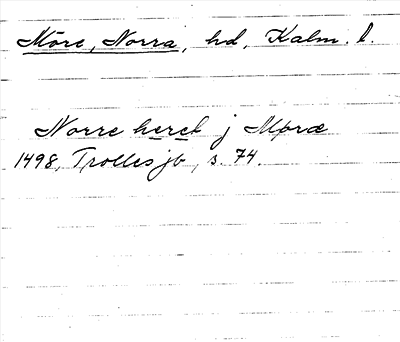 Möre, Norra, hd, Kalm. l.
Norre heret j Møræ
1498, Trolles jb, s. 74.